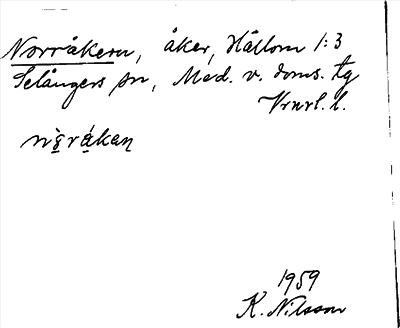 Norråkern, åker, Hållom 1:3
Selångers sn, Med. v. doms. tg
Vrnrl. l.
1959
K. Nilsson